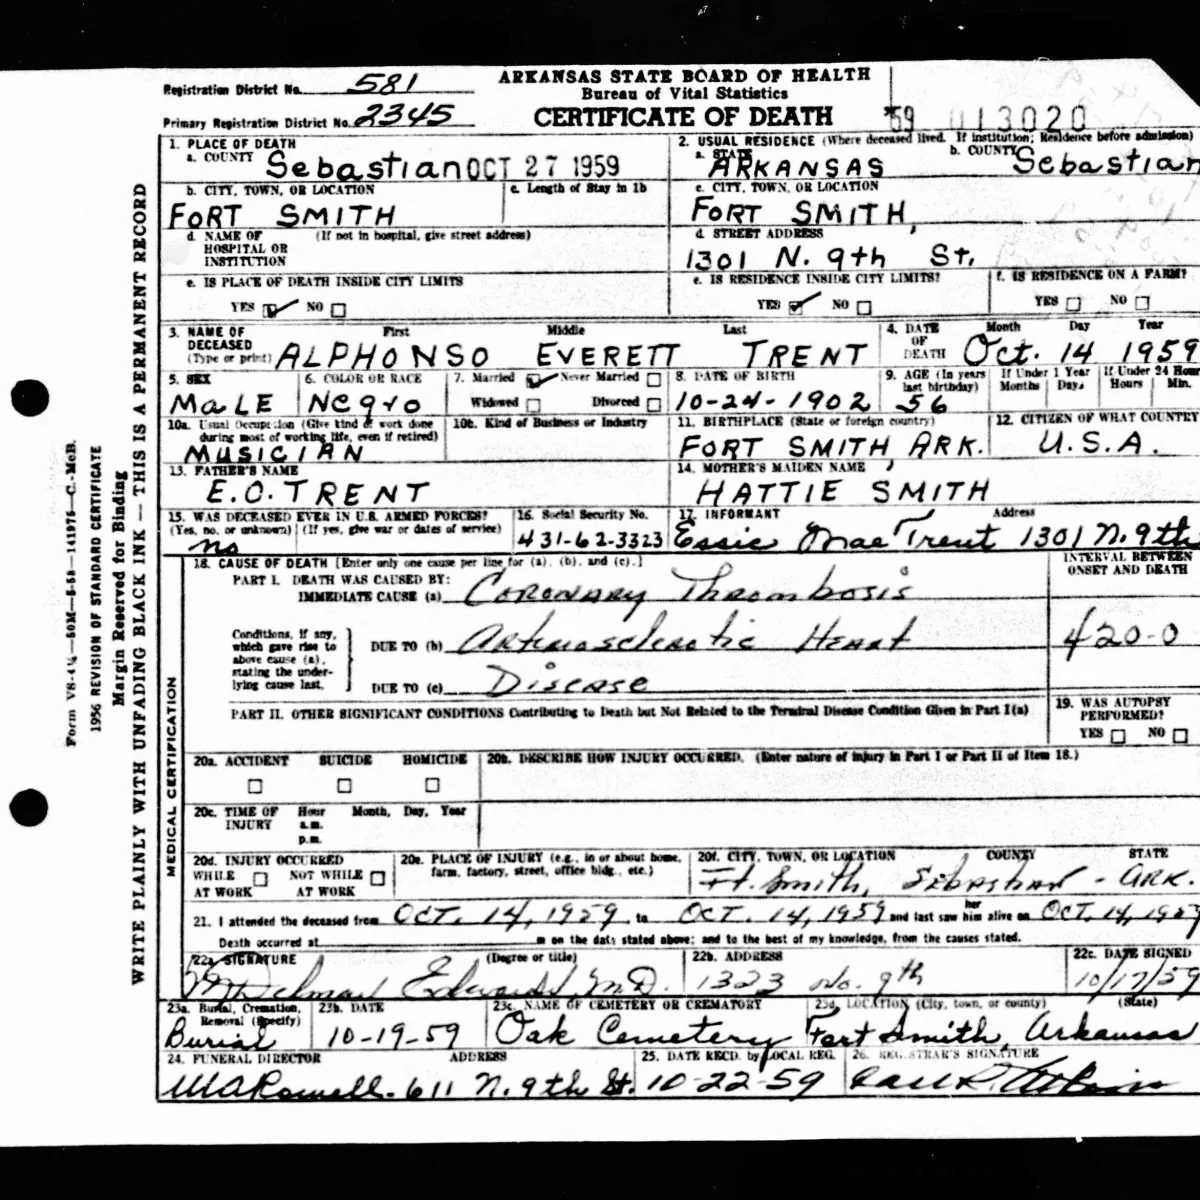 Registration District No. 581
ARKANSAS STATE BOARD OF HEALTH
Bureau of Vital Statistics
Primary Registration District No. 2345
CERTIFICATE OF DEATH
59 013020
1. PLACE OF DEATH
a. COUNTY Sebastian OCT 27 1959
2. USUAL RESIDENCE (Where deceased lived. If institution; Residence before admission)
a. STATE ARKANSAS b. COUNTY Sebastian
b. CITY, TOWN, OR LOCATION
FORT SMITH
c. Length of Stay in 1b
c. CITY, TOWN, OR LOCATION
FORT SMITH,
d. NAME OF (If not in hospital, give street address)
HOSPITAL OR
INSTITUTION
d. STREET ADDRESS
1301 N. 9th St.
e. IS PLACE OF DEATH INSIDE CITY LIMITS
YES NO
e. IS RESIDENCE INSIDE CITY LIMITS?
YES NO
f. IS RESIDENCE ON A FARM?
YES NO
3. NAME OF DECEASED (Type or print)
First Middle Last
ALPHONSO EVERETT TRENT
4. DATE OF DEATH Month Day Year
Oct. 14 1959
5. SEX
MALE
6. COLOR OR RACE
Negro
7. Married Never Married
Widowed Divorced
8. DATE OF BIRTH
10-24-1902
9. AGE (In years last birthday)
56
If Under 1 Year
Months Days
If Under 24 Hour
Hours Min.
10a. Usual Occupation (Give kind of work done
during most of working life, even if retired)
MUSICIAN
10b. Kind of Business or Industry
11. BIRTHPLACE (State or foreign country)
FORT SMITH, ARK.
12. CITIZEN OF WHAT COUNTRY
U.S.A.
13. FATHER'S NAME
E.O. TRENT
14. MOTHER'S MAIDEN NAME
HATTIE SMITH
15. WAS DECEASED EVER IN U.S. ARMED FORCES?
(Yes, no, or unknown) (If yes, give war or dates of service)
no
16. Social Security No.
431-62-3323
17. INFORMANT Address
Essie Mae Trent 1301 N. 9th
18. CAUSE OF DEATH [Enter only one cause per line for (a), (b), and (c).]
INTERVAL BETWEEN
ONSET AND DEATH
PART I. DEATH WAS CAUSED BY:
IMMEDIATE CAUSE (a) Coronary Thrombosis
Conditions, if any,
which gave rise to
above cause (a),
stating the under-
lying cause last.
DUE TO (b) Arteriosclerotic Heart
420-0
DUE TO (c) Disease
PART II. OTHER SIGNIFICANT CONDITIONS Contributing to Death but Not Related to the Terminal Disease Condition Given in Part I(a)
19. WAS AUTOPSY
PERFORMED?
YES NO
20a. ACCIDENT SUICIDE HOMICIDE
20b. DESCRIBE HOW INJURY OCCURRED. (Enter nature of injury in Part I or Part II of Item 18.)
20c. TIME OF Hour Month, Day, Year
INJURY a.m.
p.m.
20d. INJURY OCCURRED
WHILE NOT WHILE
AT WORK AT WORK
20e. PLACE OF INJURY (e.g., in or about home,
farm, factory, street, office bldg., etc.)
20f. CITY, TOWN, OR LOCATION COUNTY STATE
Ft. Smith, Sebastian - ARK.
21. I attended the deceased from OCT. 14, 1959 to OCT. 14, 1959 and last saw her him alive on OCT. 14, 1959
Death occurred at m on the date stated above; and to the best of my knowledge, from the causes stated.
22a. SIGNATURE (Degree or title)
Delmar Edwards M.D.
22b. ADDRESS
1323 No. 9th
22c. DATE SIGNED
10/17/59
23a. Burial, Cremation,
Removal (Specify)
Burial
23b. DATE
10-19-59
23c. NAME OF CEMETERY OR CREMATORY
Oak Cemetery
23d. LOCATION (City, town, or county) (State)
Fort Smith, Arkansas
24. FUNERAL DIRECTOR ADDRESS
611 N. 9th St.
25. DATE RECD. by LOCAL REG.
10-22-59
26. REGISTRAR'S SIGNATURE
Form VS-4¼—50M—5-58—141975-C.-McB.
1956 REVISION OF STANDARD CERTIFICATE
Margin Reserved for Binding
WRITE PLAINLY WITH UNFADING BLACK INK — THIS IS A PERMANENT RECORD
MEDICAL CERTIFICATION